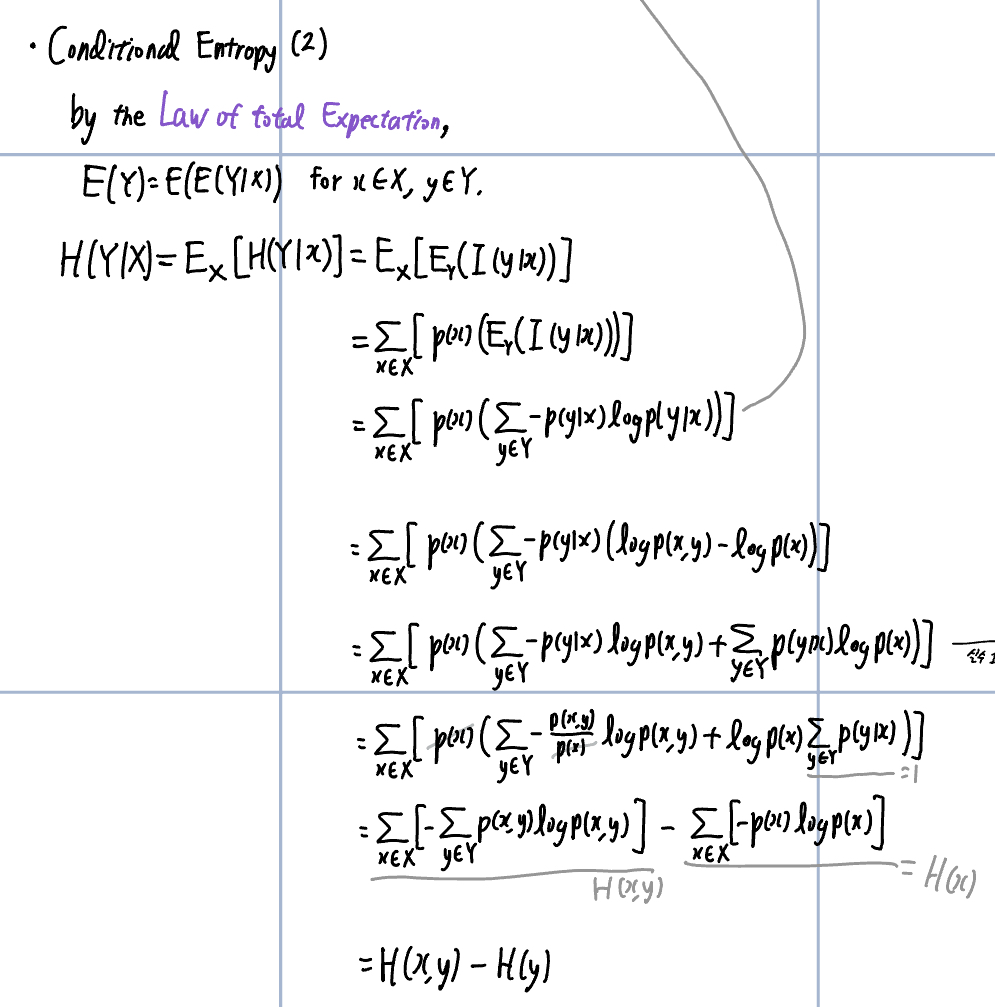 · Conditional Entropy (2)
by the Law of total Expectation,
E(Y)=E(E(Y|X)) for x∈X, y∈Y.
H(Y|X)=E_X[H(Y|x)]=E_X[E_Y(I(y|x))]
=∑_{x∈X}[p(x)(E_Y(I(y|x)))]
=∑_{x∈X}[p(x)(∑_{y∈Y}-p(y|x)logp(y|x))]
=∑_{x∈X}[p(x)(∑_{y∈Y}-p(y|x)(logp(x,y)-logp(x))]
=∑_{x∈X}[p(x)(∑_{y∈Y}-p(y|x)logp(x,y)+∑_{y∈Y}p(y|x)logp(x))]
=∑_{x∈X}[p(x)(∑_{y∈Y}-\frac{p(x,y)}{p(x)}logp(x,y)+logp(x)∑_{y∈Y}p(y|x))] =1
=∑_{x∈X}[-∑_{y∈Y}p(x,y)logp(x,y)]-∑_{x∈X}[-p(x)logp(x)]
H(x,y) =H(x)
=H(x,y)-H(y)